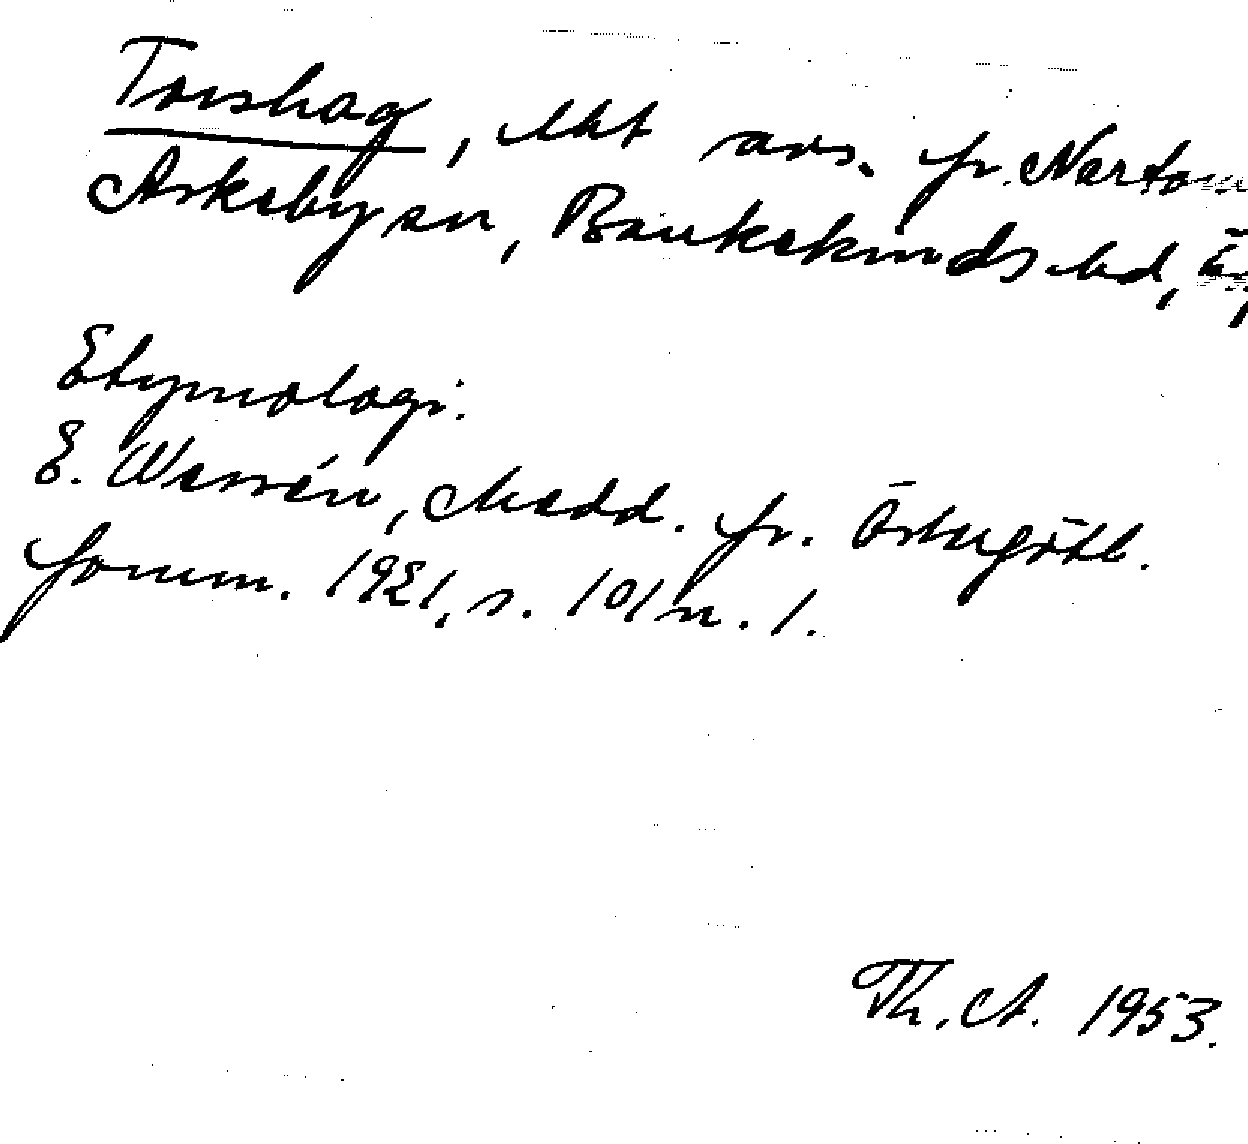 Torshag, lht avs. fr. Nartorp
Askeby sn, Bankekinds hd, Ög
Etymologi:
E. Wessén, Medd. fr. Östergötl.
fornm. 1921, s. 101 n. 1.
Th. A. 1953.